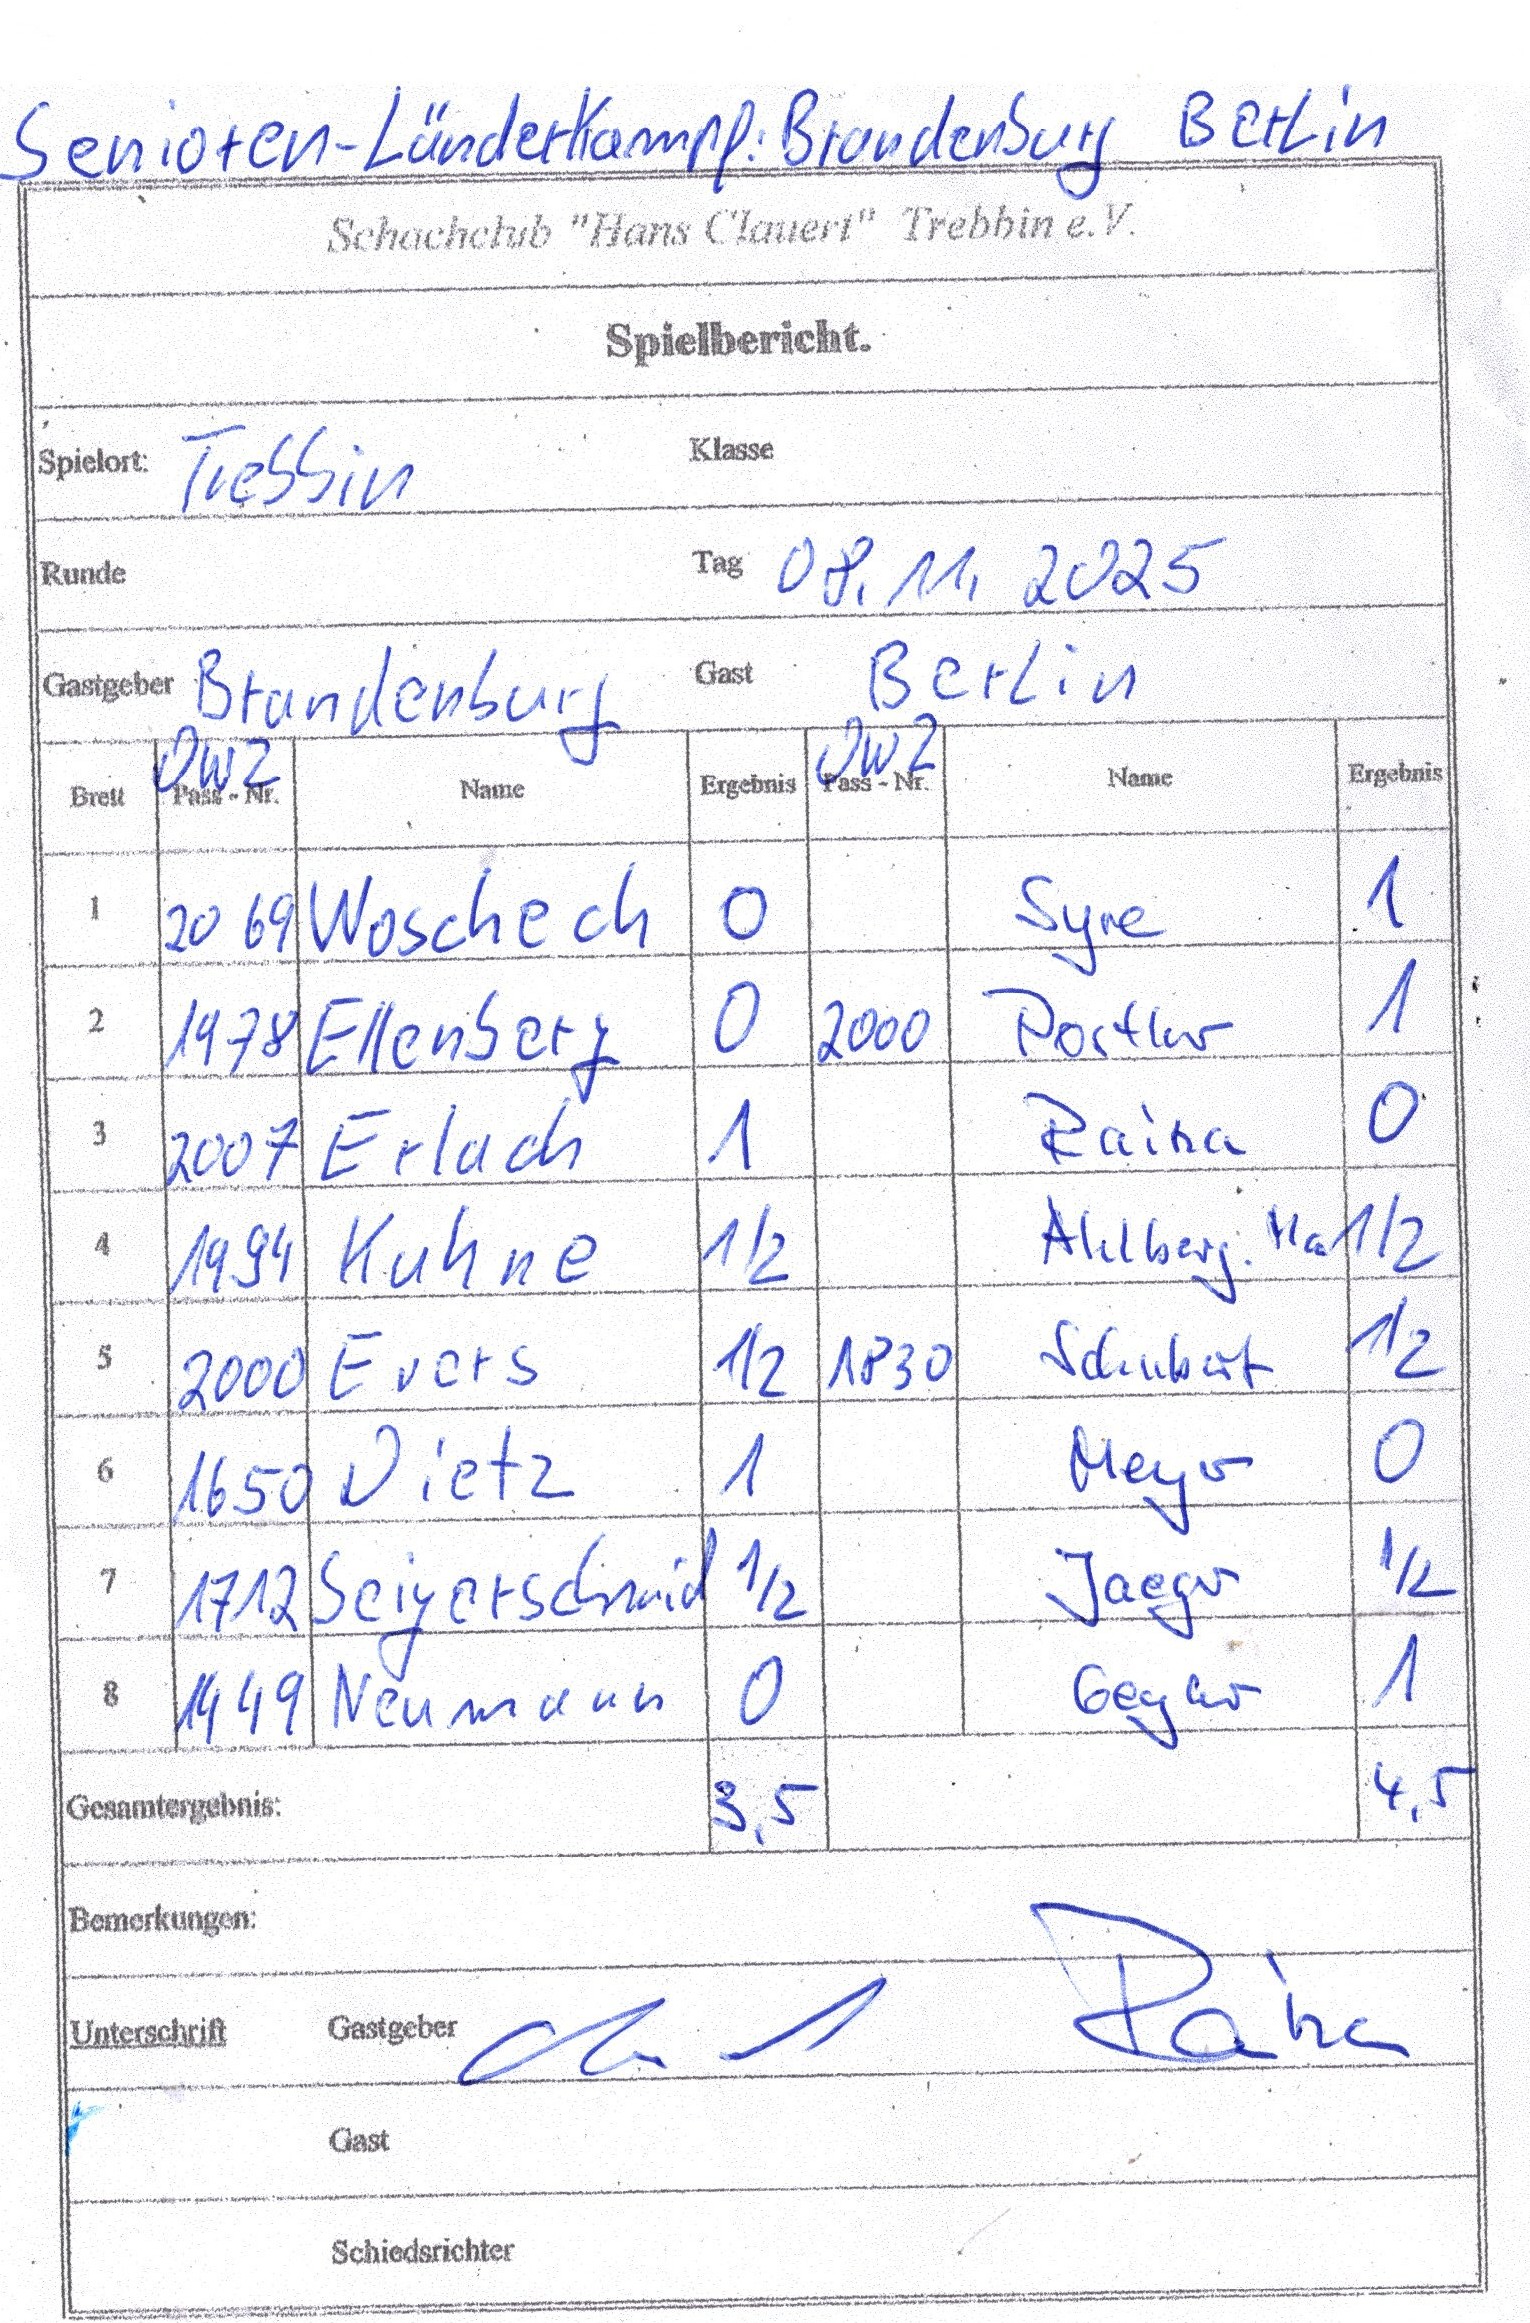 Senioren-Länderkampf: Brandenburg Berlin
Schachclub "Hans Clauert" Trebbin e.V.
Spielbericht.
Spielort: Trebbin Klasse
Runde Tag 08.11.2025
Gastgeber Brandenburg Gast Berlin
DWZ DWZ
Brett Pass - Nr. Name Ergebnis Pass - Nr. Name Ergebnis
1 2069 Woschech 0 Syre 1
2 1978 Ellenberg 0 2000 1
3 2007 Erlach 1 Raina 0
4 1994 Kuhne 1/2 Ahlberg. Ha 1/2
5 2000 Evers 1/2 1830 Schubert 1/2
6 1650 Dietz 1 Meyer 0
7 1712 Seigerschmid 1/2 Jaeger 1/2
8 1449 Neumann 0 1
Gesamtergebnis: 3,5 4,5
Bemerkungen:
Unterschrift Gastgeber Raina
Gast
Schiedsrichter